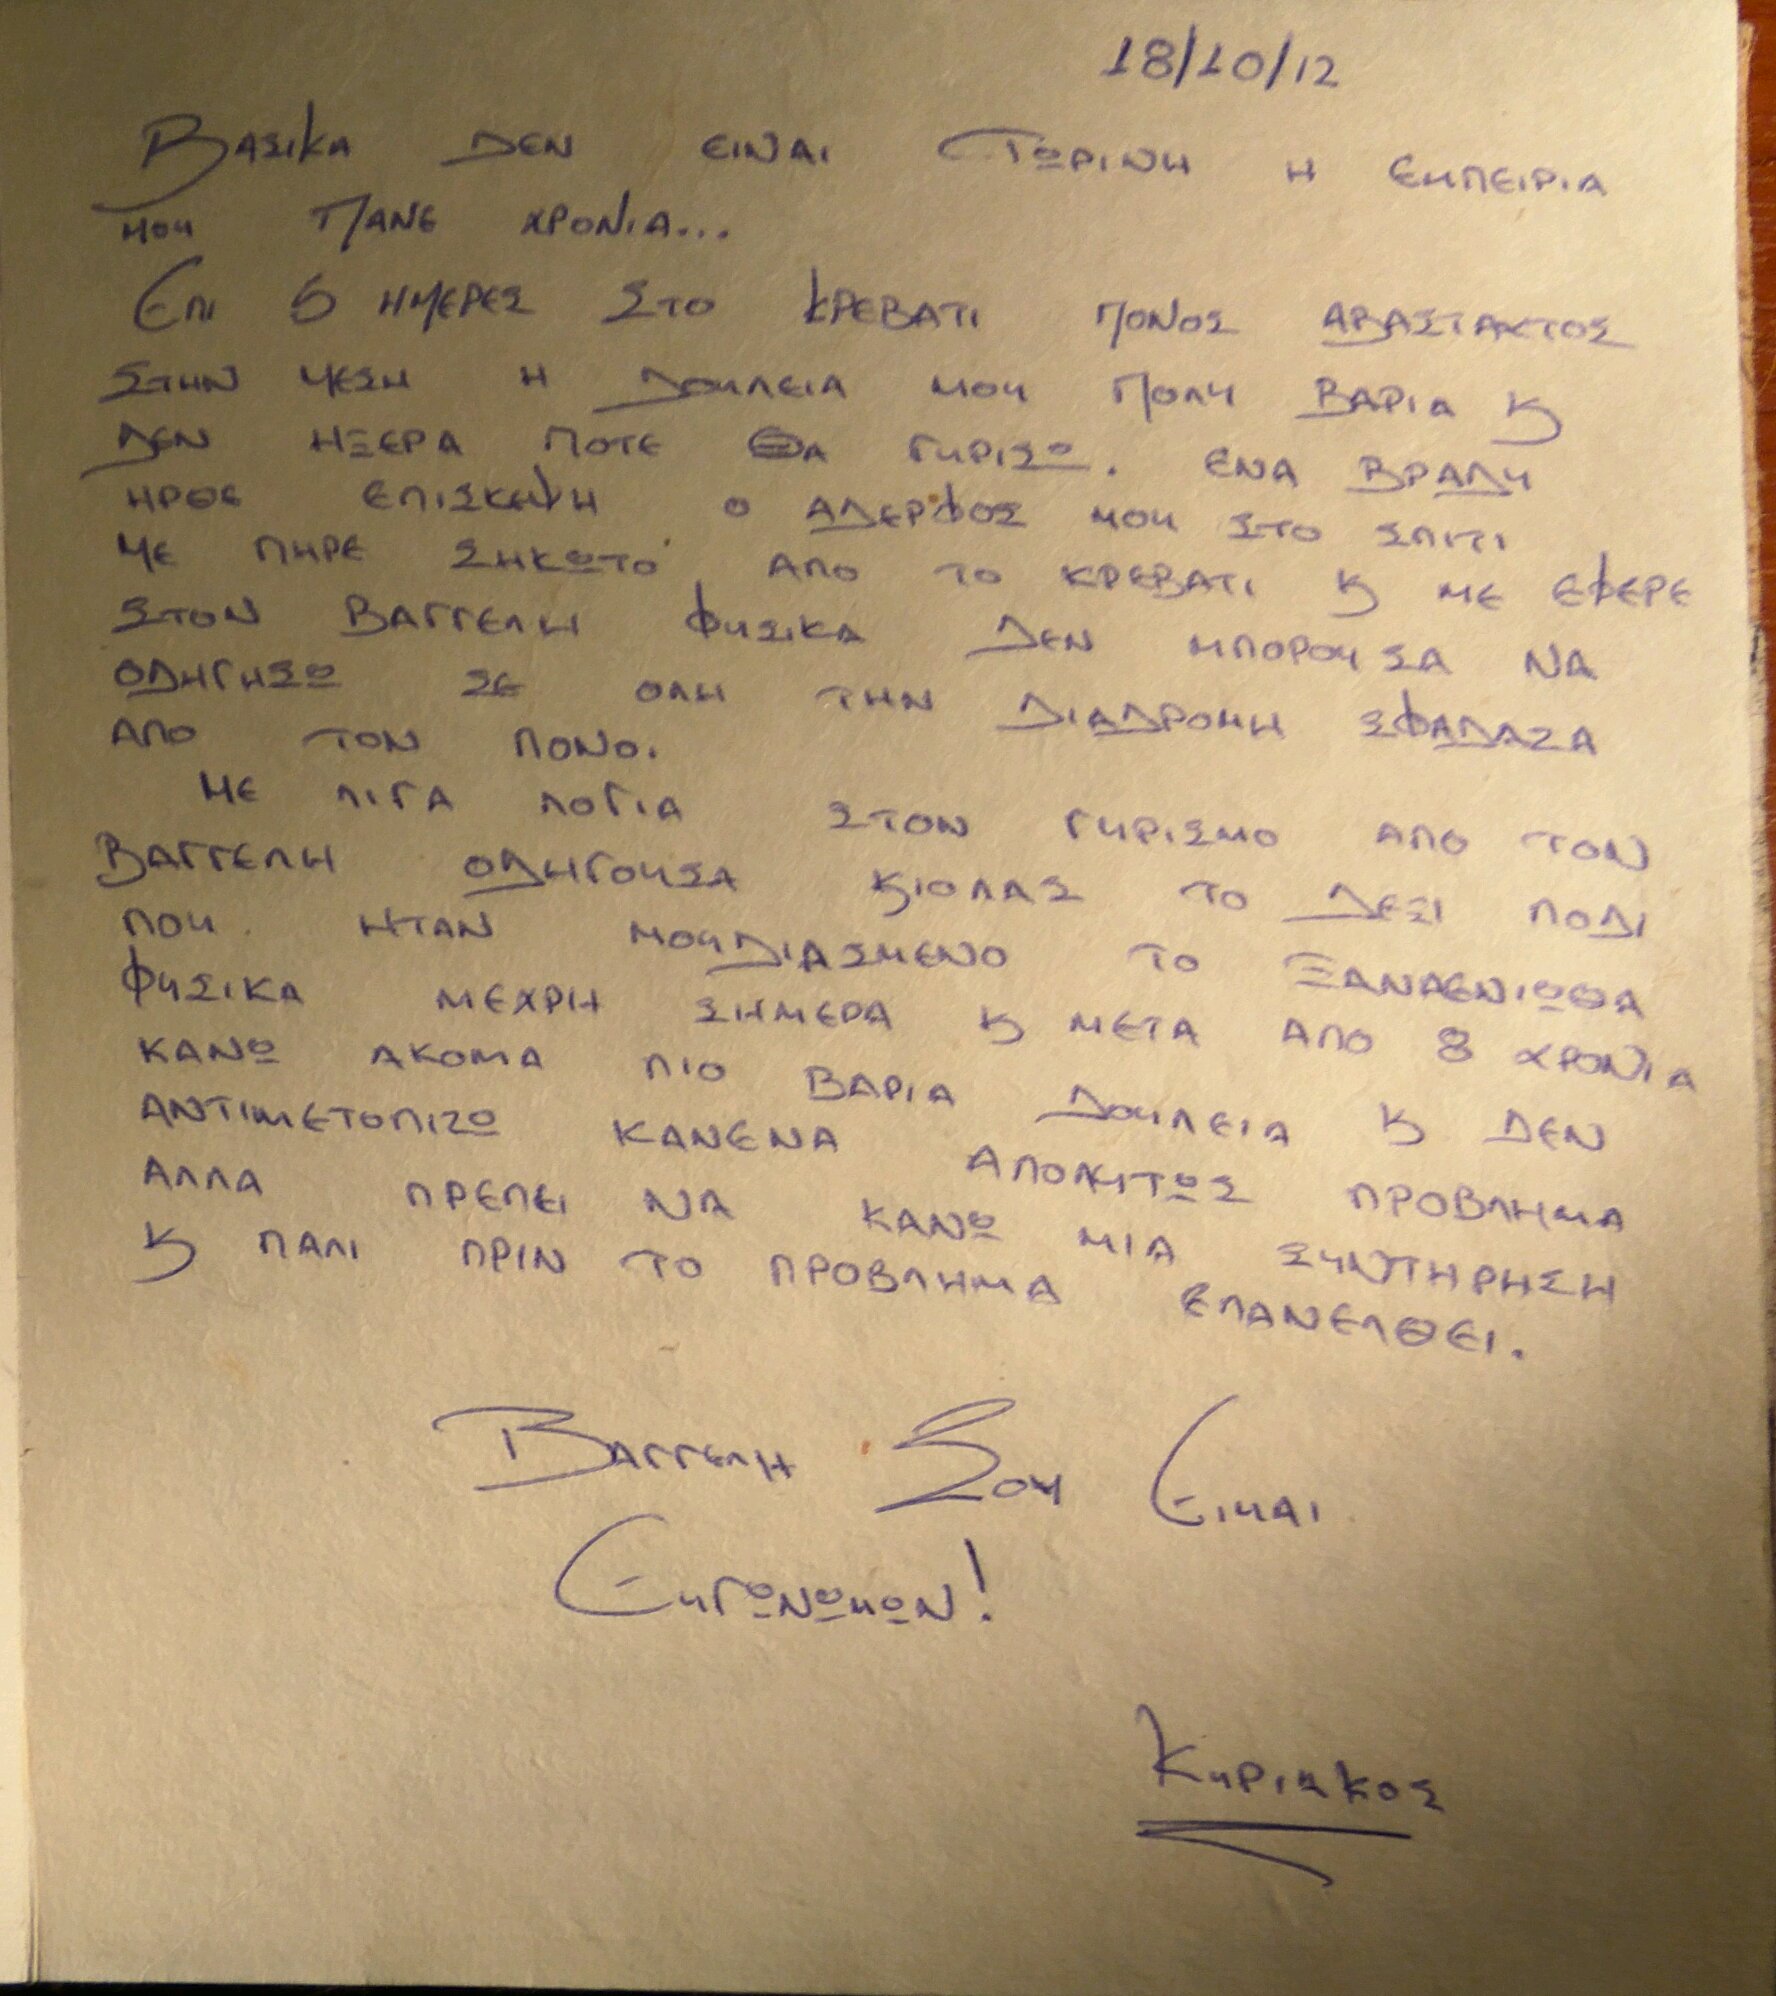 18/10/12
ΒΑΣΙΚΑ ΔΕΝ ΕΙΝΑΙ ΤΩΡΙΝΗ Η ΕΜΠΕΙΡΙΑ
ΜΟΥ ΠΑΝΕ ΧΡΟΝΙΑ...
ΕΠΙ 5 ΗΜΕΡΕΣ ΣΤΟ ΚΡΕΒΑΤΙ ΠΟΝΟΣ ΑΒΑΣΤΑΚΤΟΣ
ΣΤΗΝ ΜΕΣΗ Η ΔΟΥΛΕΙΑ ΜΟΥ ΠΟΛΥ ΒΑΡΙΑ Κ
ΔΕΝ ΗΞΕΡΑ ΠΟΤΕ ΘΑ ΓΥΡΙΣΩ. ΕΝΑ ΒΡΑΔΥ
ΗΡΘΕ ΕΠΙΣΚΕΨΗ Ο ΑΔΕΡΦΟΣ ΜΟΥ ΣΤΟ ΣΠΙΤΙ
ΜΕ ΠΗΡΕ ΣΗΚΩΤΟ ΑΠΟ ΤΟ ΚΡΕΒΑΤΙ Κ ΜΕ ΕΦΕΡΕ
ΣΤΟΝ ΒΑΓΓΕΛΗ ΦΥΣΙΚΑ ΔΕΝ ΜΠΟΡΟΥΣΑ ΝΑ
ΟΔΗΓΗΣΩ ΣΕ ΟΛΗ ΤΗΝ ΔΙΑΔΡΟΜΗ ΣΦΑΔΑΖΑ
ΑΠΟ ΤΟΝ ΠΟΝΟ.
ΜΕ ΛΙΓΑ ΛΟΓΙΑ ΣΤΟΝ ΓΥΡΙΣΜΟ ΑΠΟ ΤΟΝ
ΒΑΓΓΕΛΗ ΟΔΗΓΟΥΣΑ ΚΙΟΛΑΣ ΤΟ ΔΕΞΙ ΠΟΔΙ
ΠΟΥ ΗΤΑΝ ΜΟΥΔΙΑΣΜΕΝΟ ΤΟ ΞΑΝΑΕΝΙΩΘΑ
ΦΥΣΙΚΑ ΜΕΧΡΗ ΣΗΜΕΡΑ Κ ΜΕΤΑ ΑΠΟ 8 ΧΡΟΝΙΑ
ΚΑΝΩ ΑΚΟΜΑ ΠΙΟ ΒΑΡΙΑ ΔΟΥΛΕΙΑ Κ ΔΕΝ
ΑΝΤΙΜΕΤΟΠΙΖΩ ΚΑΝΕΝΑ ΑΠΟΛΥΤΩΣ ΠΡΟΒΛΗΜΑ
ΑΛΛΑ ΠΡΕΠΕΙ ΝΑ ΚΑΝΩ ΜΙΑ ΣΥΝΤΗΡΗΣΗ
Κ ΠΑΛΙ ΠΡΙΝ ΤΟ ΠΡΟΒΛΗΜΑ ΕΠΑΝΕΛΘΕΙ.
ΒΑΓΓΕΛΗ ΣΟΥ ΕΙΜΑΙ
ΕΥΓΩΝΩΜΩΝ!
ΚΥΡΙΑΚΟΣ